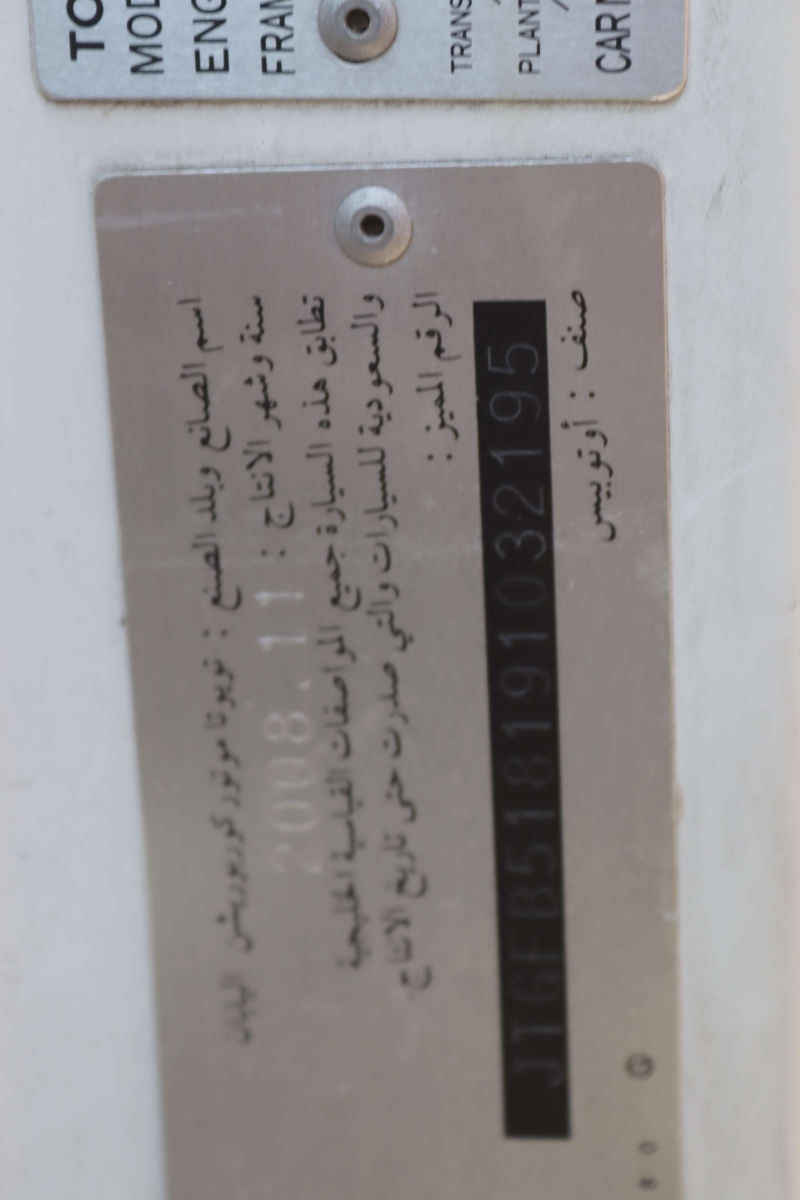 TO
MOD
ENG
FRAM
TRANS
PLANT
CAR
اسم الصانع وبلد الصنع : تويوتا موتور كوربوريشن اليابان
سنة وشهر الانتاج : 2008.11
تطابق هذه السيارة جميع المواصفات القياسية الخليجية
والسعودية للسيارات والتي صدرت حتى تاريخ الانتاج
الرقم المميز :
JTGFB518191032195
صنف : أوتوبيس